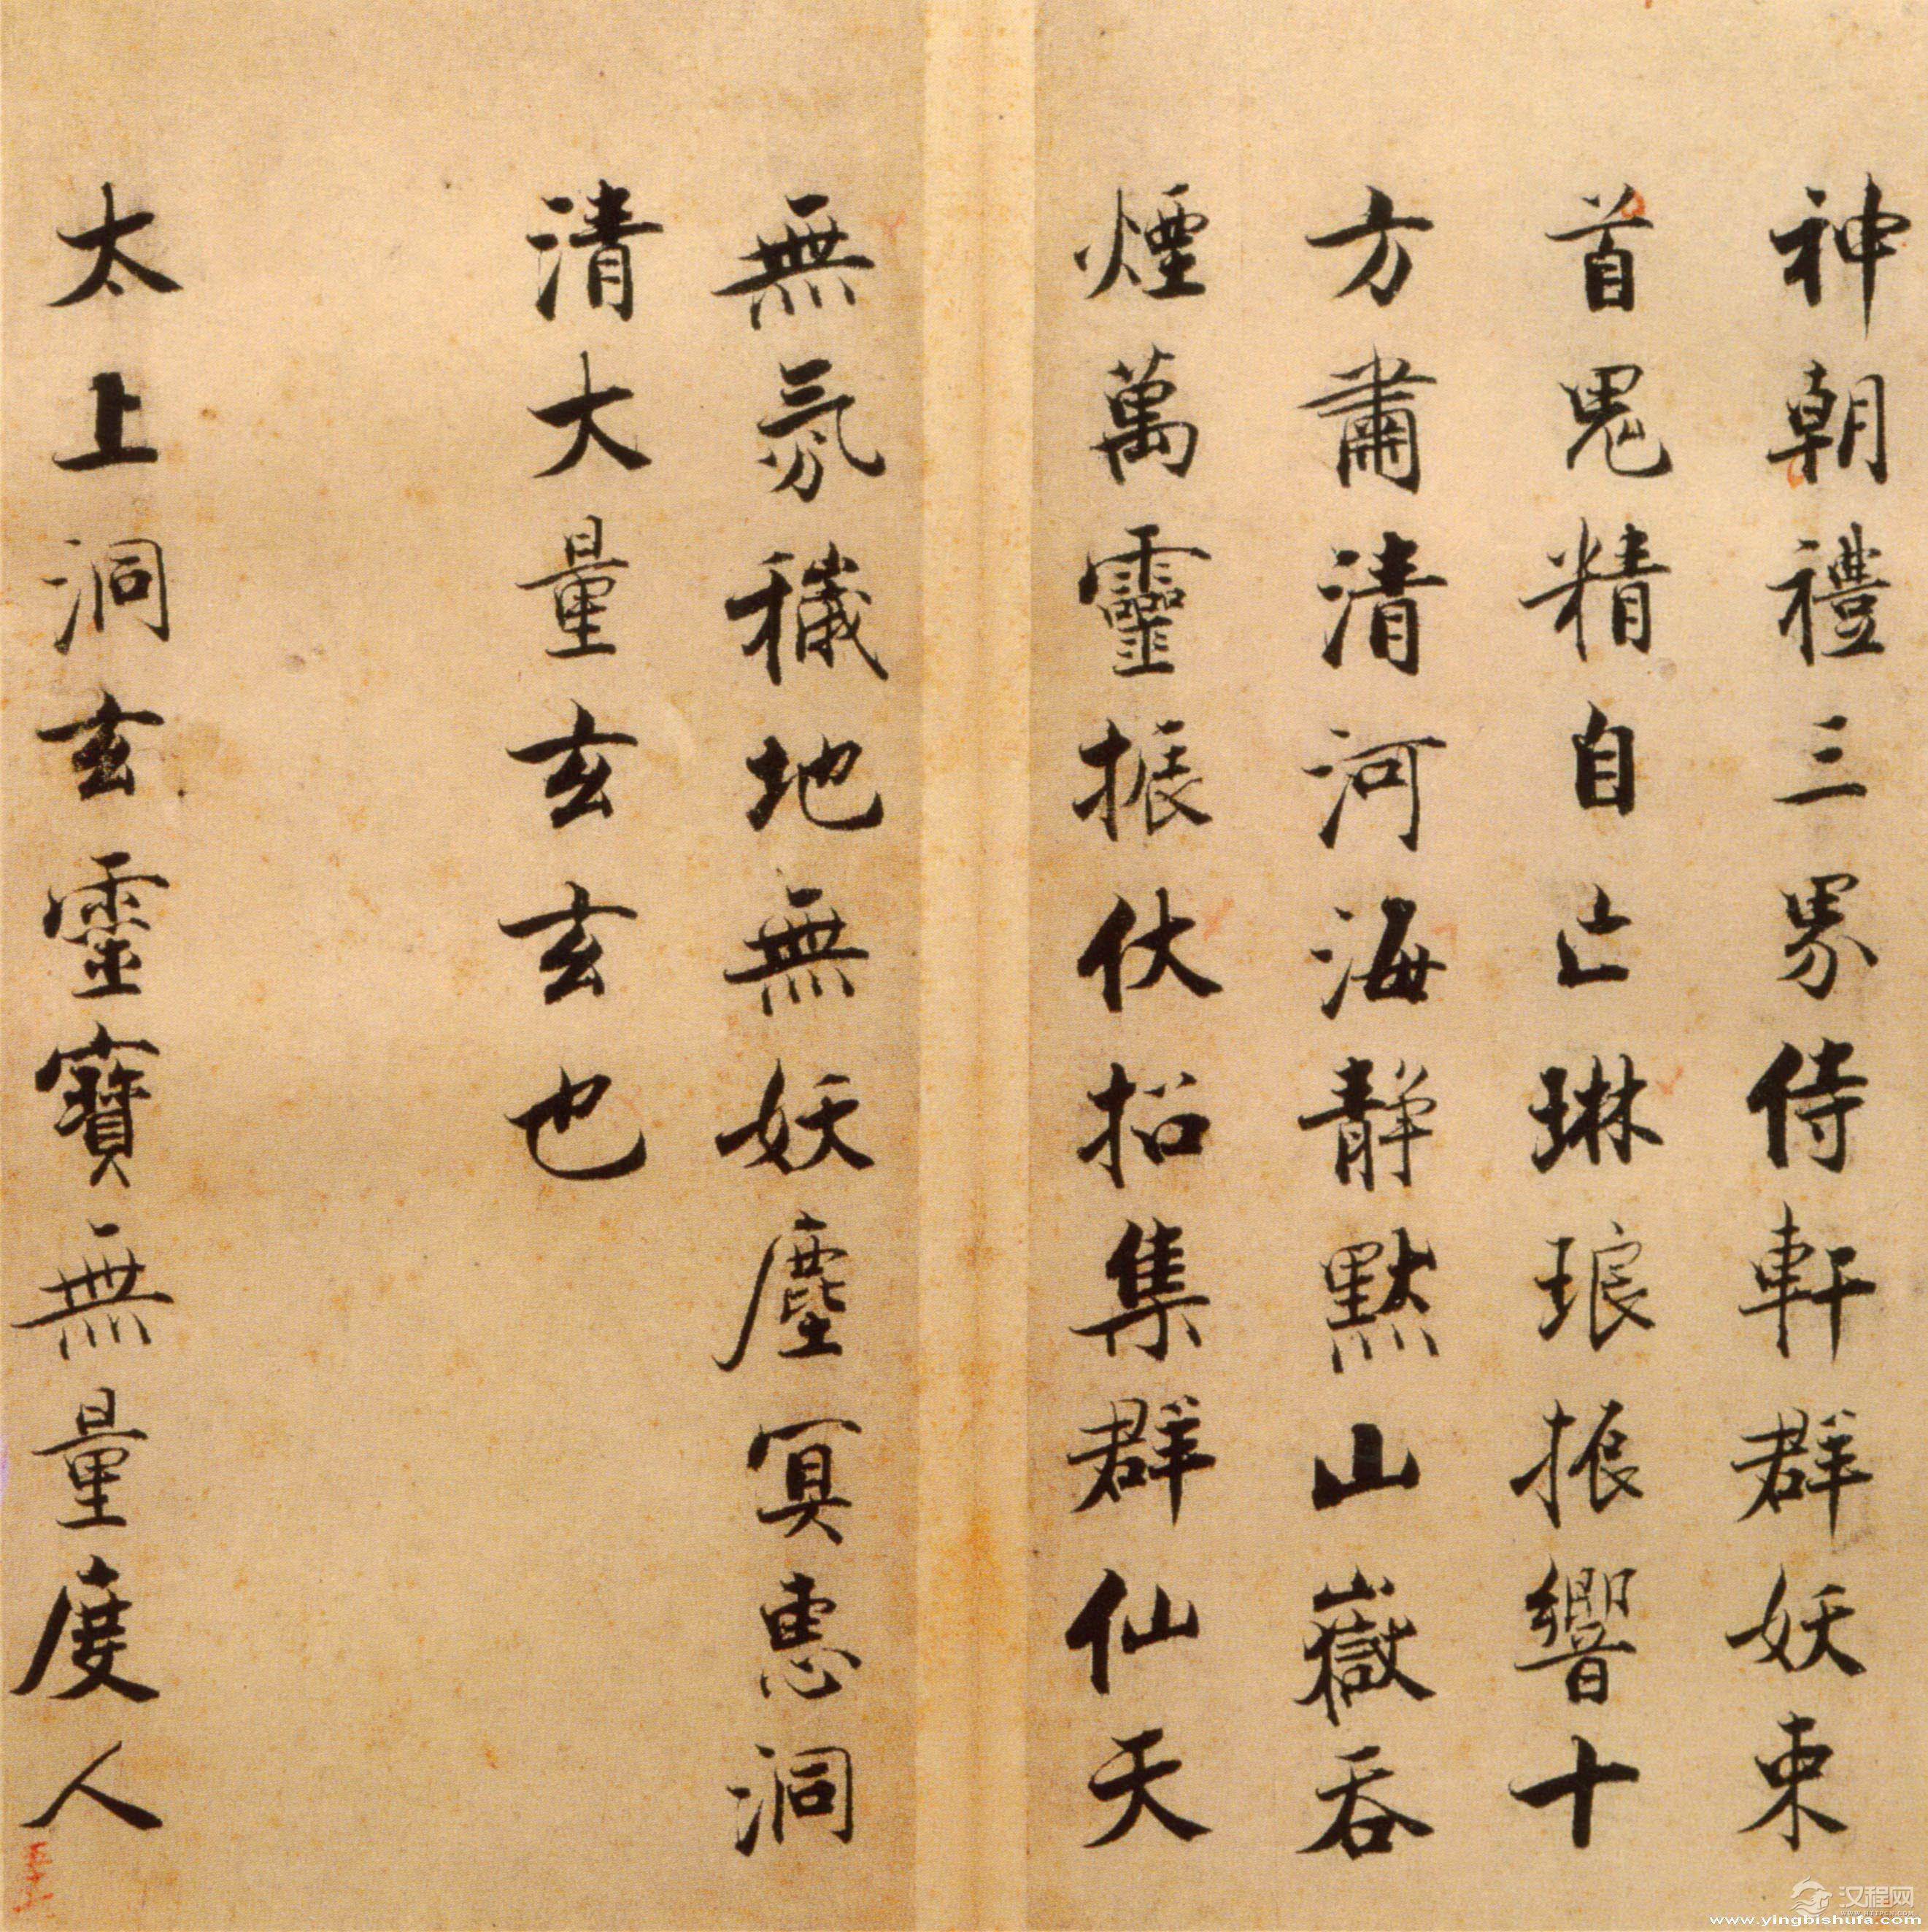 神朝禮三界侍軒群妖束
首鬼精自亡琳琅振響十
方肅清河海靜默山嶽吞
煙萬靈振伏招集群仙天
無氛穢地無妖塵冥惠洞
清大量玄玄也
太上洞玄靈寶無量度人
汉程网
www.yingbishufa.com